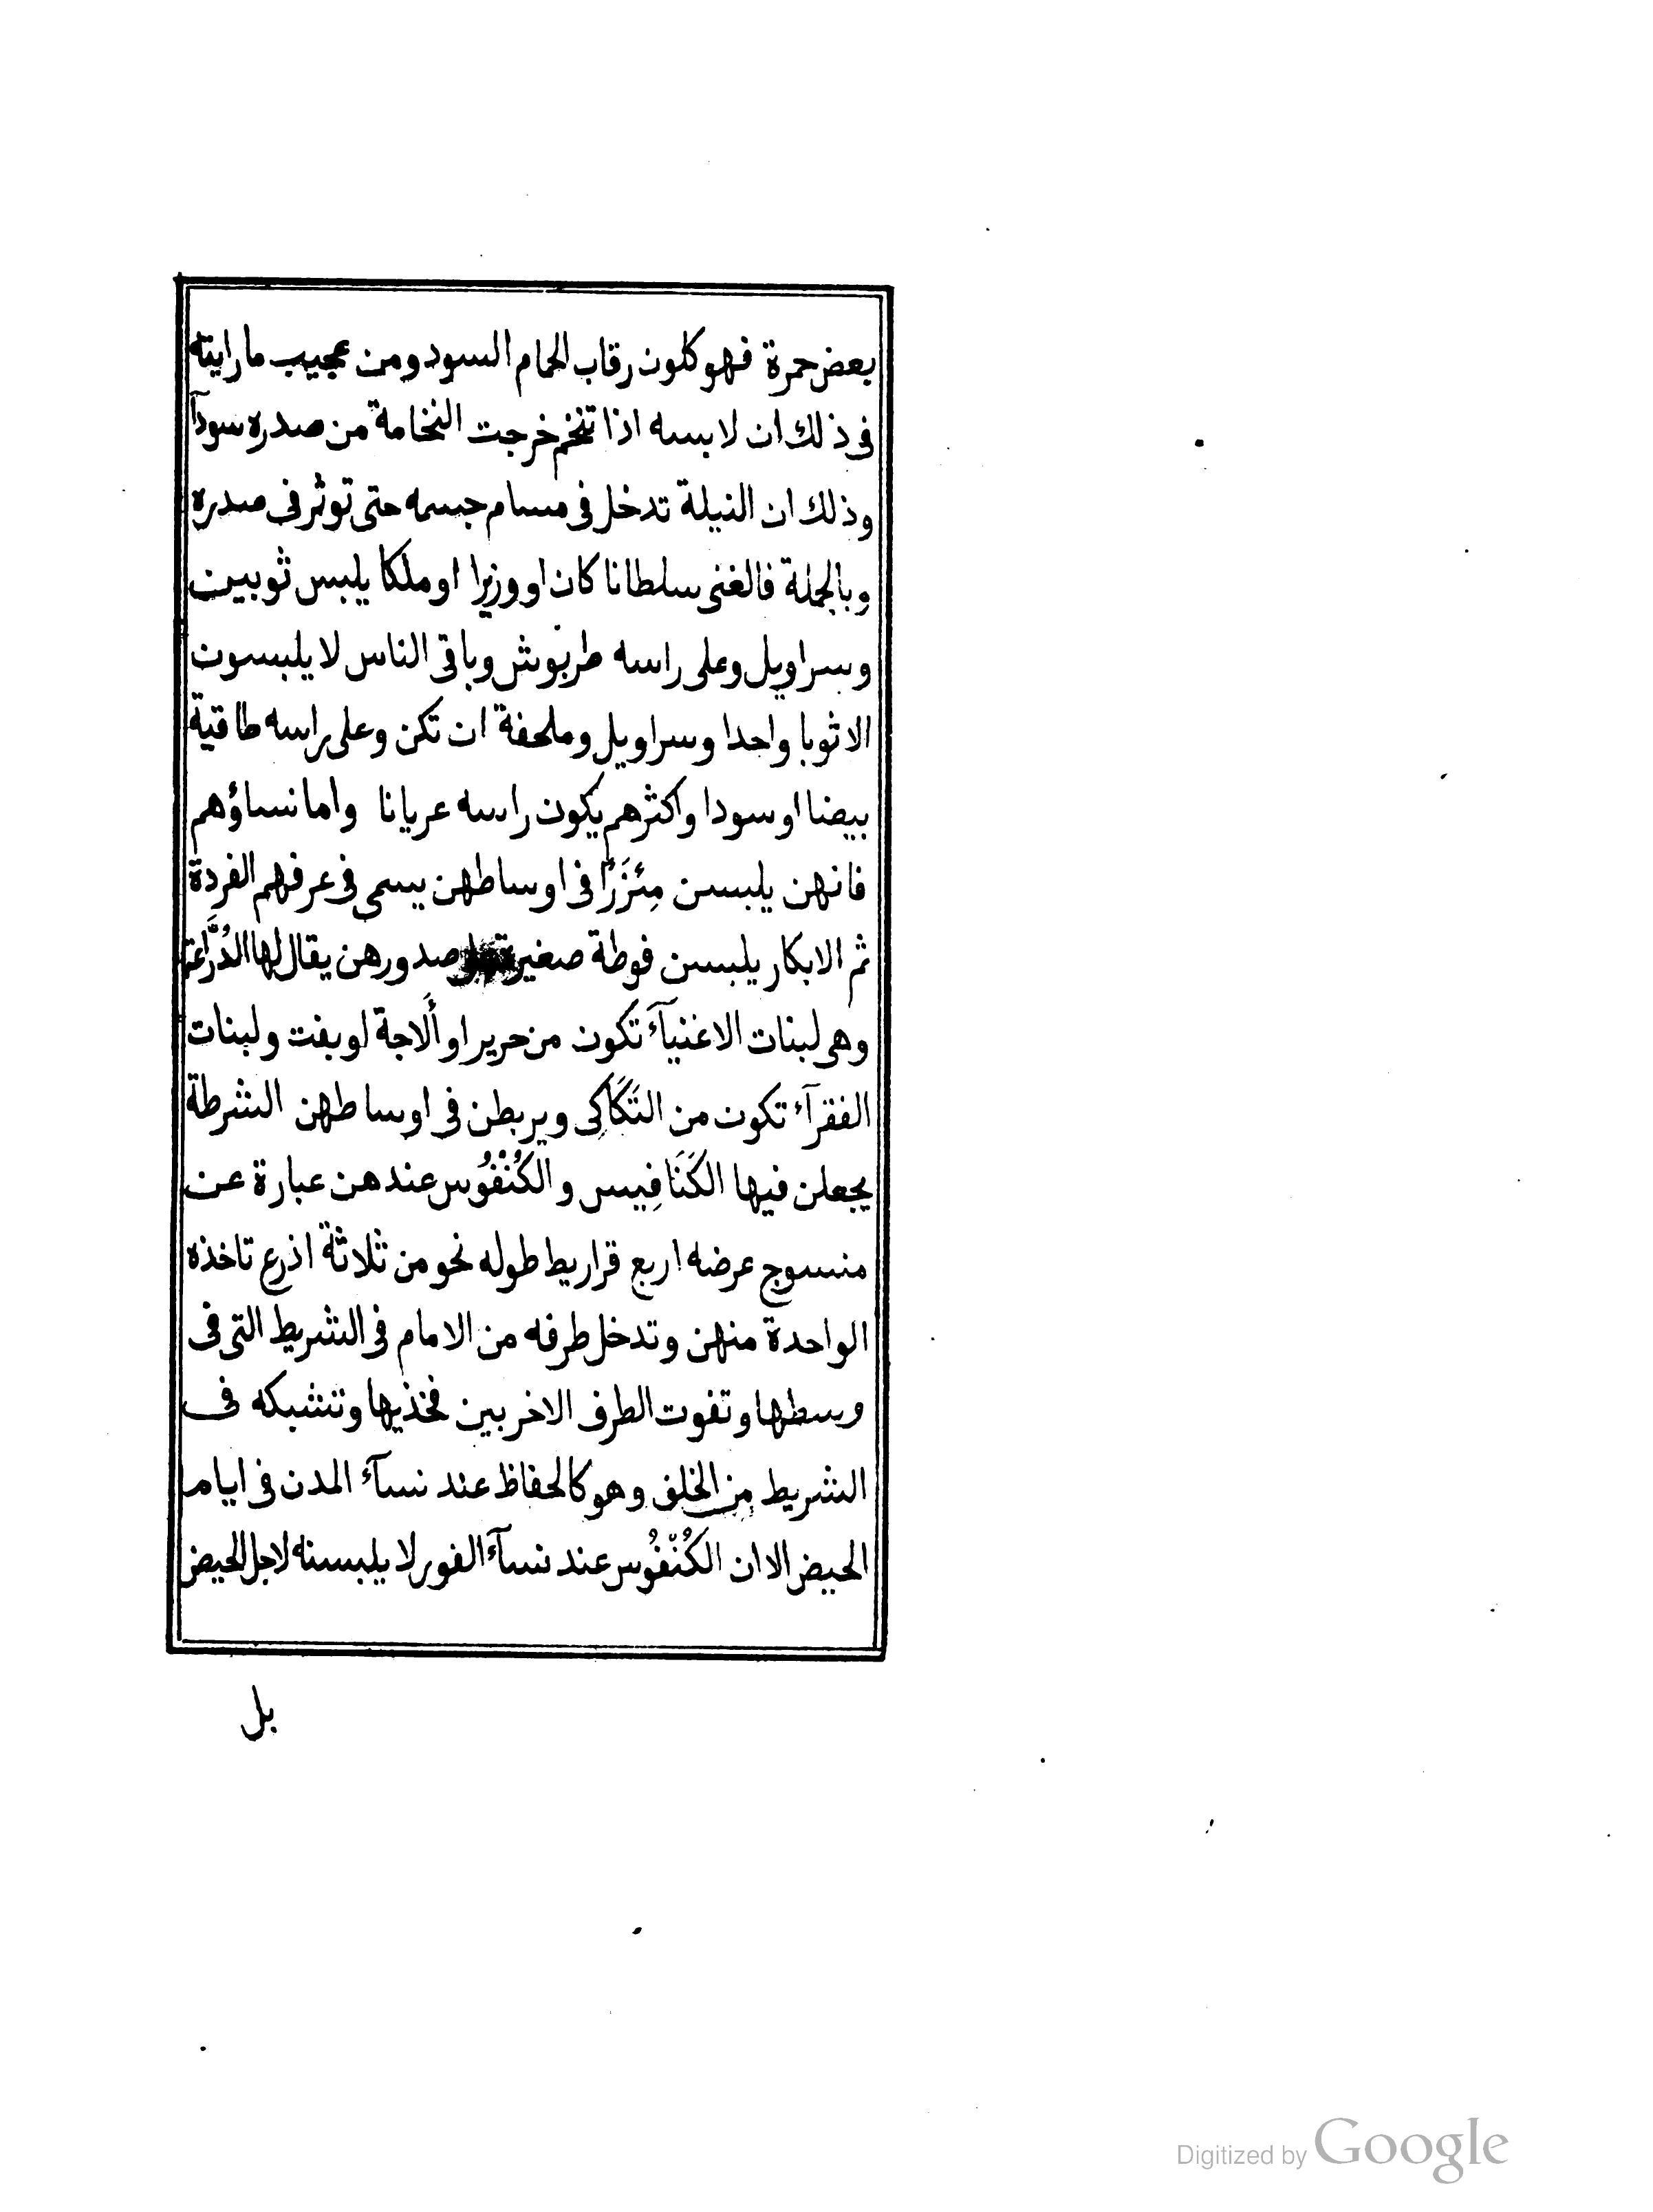 بعض حمرة فهو كلون رقاب الحمام السود ومن عجيب ما رايته
فى ذلك ان لابسه اذا تنخم خرجت النخامة من صدره سودآ
وذلك ان النيلة تدخل فى مسام جسمه حتى توثر فى صدره
وبالجملة فالغنى سلطانا كان او وزيرا او ملكا يلبس ثوبين
وسراويل وعلى راسه طربوش وباقى الناس لا يلبسون
الا ثوبا واحدا وسراويل وملحفة ان تكن وعلى راسه طاقية
بيضا او سودا واكثرهم يكون راسه عريانا واما نساؤهم
فانهن يلبسن مِئزَرًا فى اوساطهن يسمى فى عرفهم الفردة
ثم الابكار يلبسن فوطة صغيرة صدورهن يقال لها الدُرَّاعة
وهى لبنات الاغنيآء تكون من حرير او أَلاجة او بفت ولبنات
الفقرآء تكون من التَكَاكِى ويربطن فى اوساطهن الشرطة
يجعلن فيها الكَنَافِيس والكُنْفُوس عندهن عبارة عن
منسوج عرضه اربع قراريط طوله نحو من ثلاثة اذرع تاخذه
الواحدة منهن وتدخل طرفه من الامام فى الشريط التى فى
وسطها وتفوت الطرف الاخر بين فخذيها وتشبكه فى
الشريط من الخلف وهو كالحفاظ عند نسآء المدن فى ايام
الحيض الا ان الكُنْفُوس عند نسآء الفور لا يلبسنه لاجل الحيض
بل
Digitized by Google